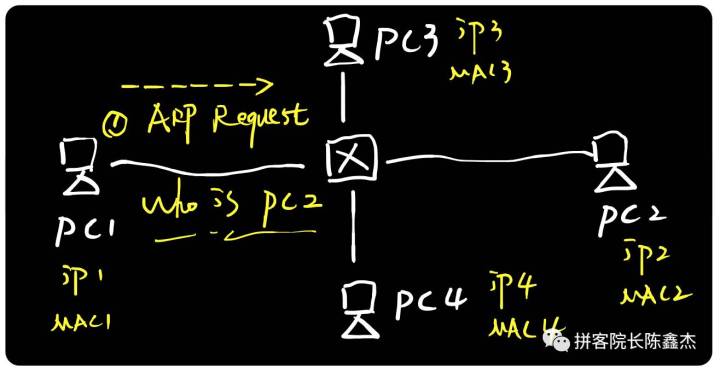 PC3
iP3
MAC3
① ARP Request
Who is PC2
PC1
iP1
MAC1
PC2
iP2
MAC2
PC4
iP4
MAC4
拼客院长陈鑫杰